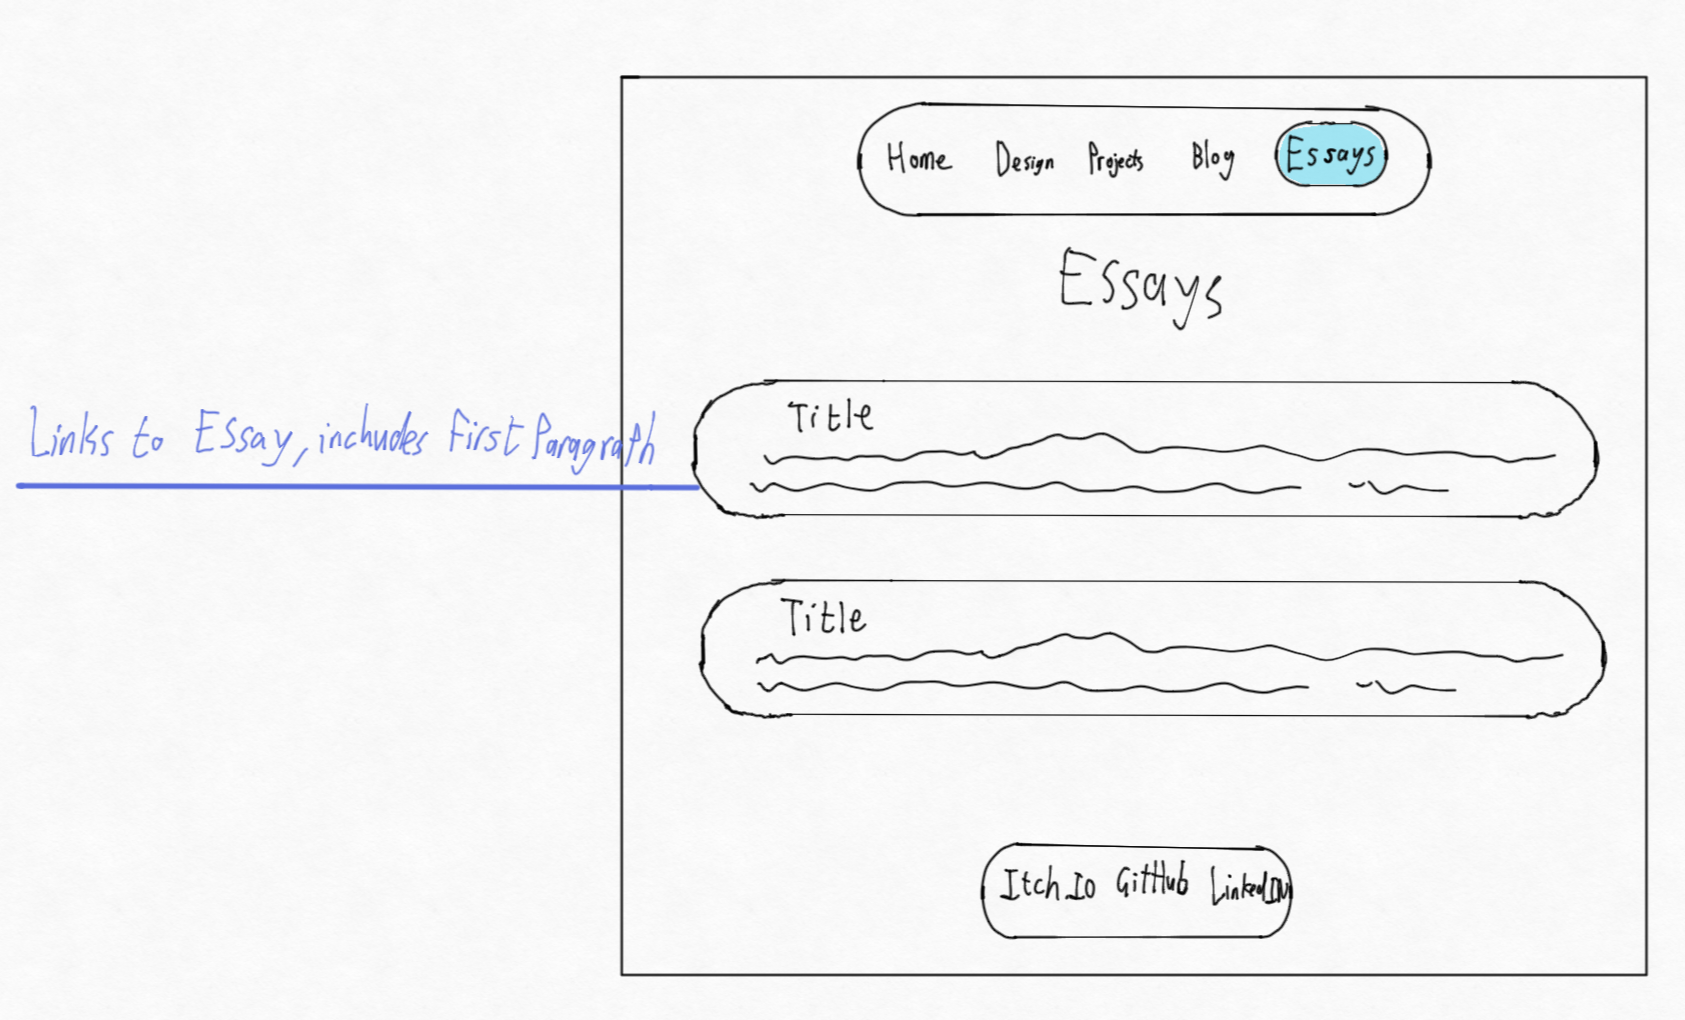 Home Design Projects Blog Essays
Essays
Title
Links to Essay, includes First Paragraph
Title
Itch Io GitHub LinkedIN